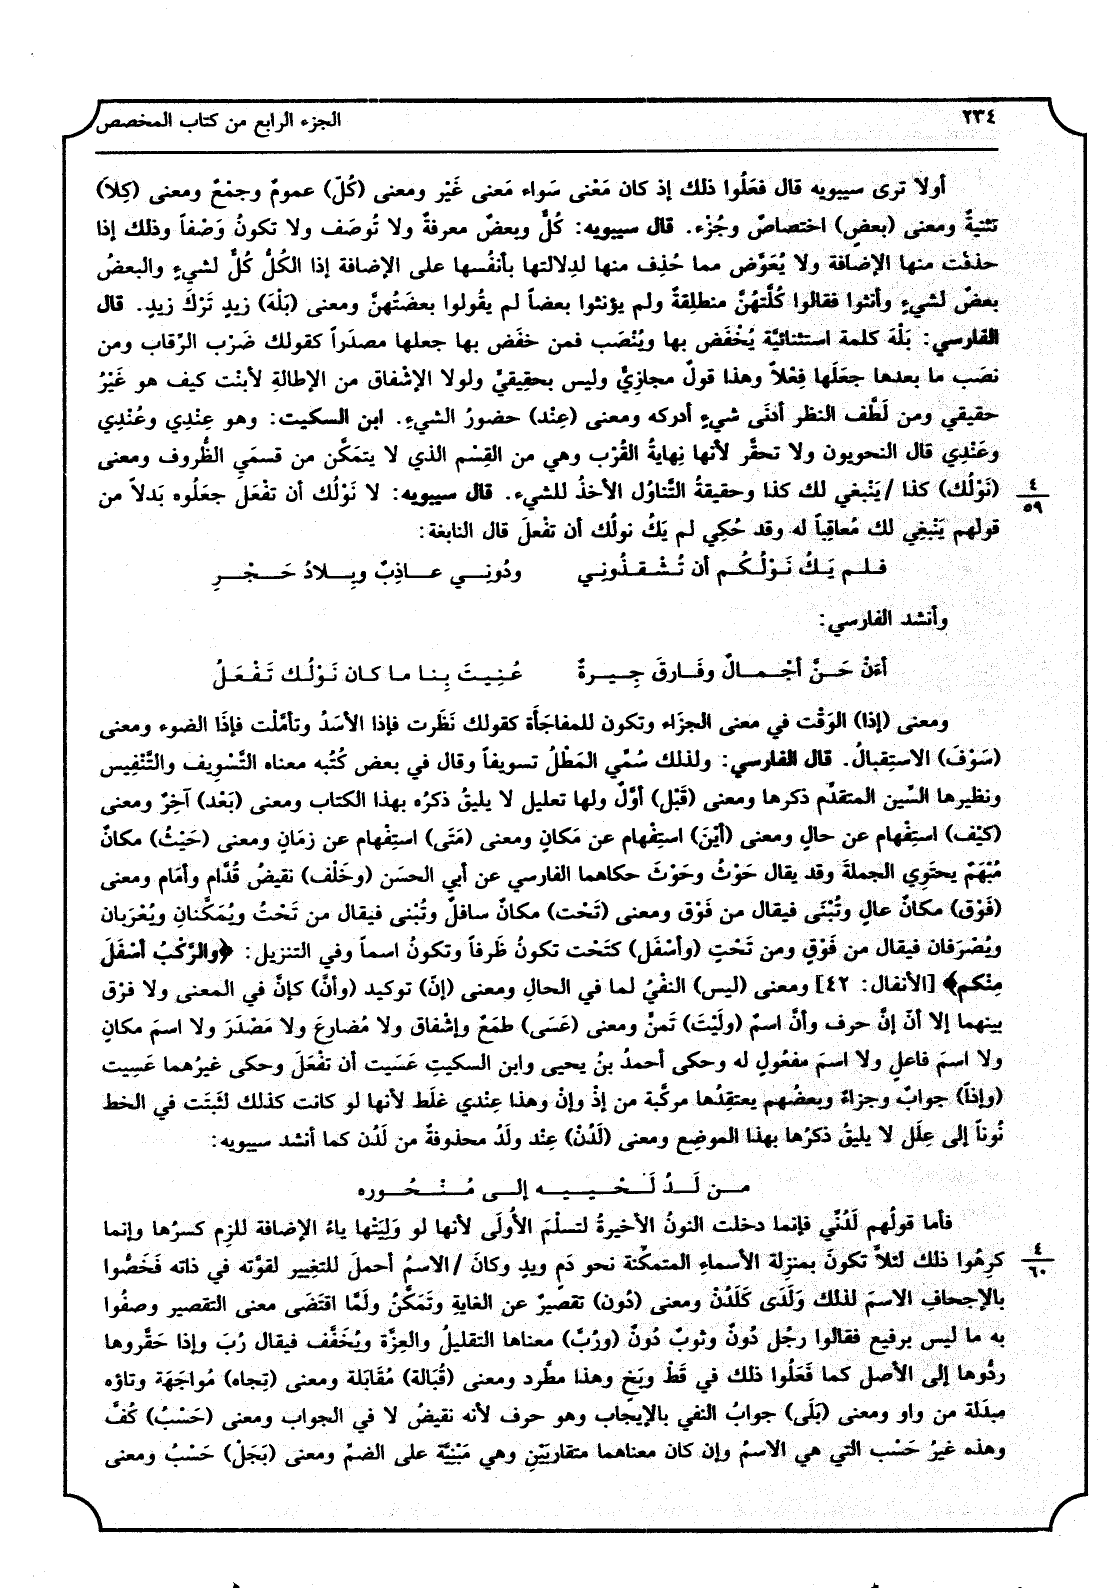 ٢٣٤ الجزء الرابع من كتاب المخصص
أولا ترى سيبويه قال فعَلُوا ذلك إذ كان مَعْنى سَواء مَعنى غَيْر ومعنى (كُلّ) عمومٌ وجمْعٌ ومعنى (كِلاَ)
تثنيةٌ ومعنى (بعض) اختصاصٌ وجُزْء. قال سيبويه: كُلٌّ وبعضٌ معرفةٌ ولا تُوصَف ولا تكونُ وَصْفاً وذلك إذا
حذفْت منها الإضافة ولا يُعَوَّض مما حُذِف منها لدِلالتها بأنفُسها على الإضافة إذا الكُلُّ كُلٌّ لشيءٍ والبعضُ
بعضٌ لشيءٍ وأنثوا فقالوا كُلَّتهُنَّ منطلِقةٌ ولم يؤنثوا بعضاً لم يقُولوا بعضَتُهنَّ ومعنى (بَلْهَ) زيدٍ تَرْكَ زيدٍ. قال
الفارسي: بَلْهَ كلمة استثنائيَّة يُخْفَض بها ويُنْصَب فمن خفَض بها جعلها مصدَراً كقولك ضَرْب الرِّقاب ومن
نصَب ما بعدها جعَلَها فِعْلاً وهذا قولٌ مجازِيٌّ وليس بحقِيقيٍّ ولولا الإشْفاق من الإطالةِ لأبنْت كيف هو غَيْرُ
حقيقي ومن لَطَّف النظر أدنَى شيءٍ أدركه ومعنى (عِنْد) حضورُ الشيءِ. ابن السكيت: وهو عِنْدِي وعُنْدِي
وعَنْدِي قال النحويون ولا تحقَّر لأنها نِهايةُ القُرْب وهي من القِسْم الذي لا يتمَكَّن من قسمَيِ الظُّروف ومعنى
(نَوْلُك) كذا /يَنْبغي لك كذا وحقيقةُ التَّناوُل الأخذُ للشيء. قال سيبويه: لا نَوْلُك أن تفْعَل جعلُوه بَدلاً من
٤
٥٩
قولهم يَنْبغِي لك مُعاقِباً له وقد حُكِي لم يَكُ نولُك أن تفْعلَ قال النابغة:
فلم يَكُ نَوْلُكُم أن تُشْقذُونِي ودُونِي عاذِبٌ وبِلادُ حَجْرِ
وأنشد الفارسي:
أءَنْ حَنَّ أجْمالٌ وفَارقَ جِيرةٌ عُنِيتَ بِنا ما كان نَوْلُك تَفْعَلُ
ومعنى (إذا) الوَقْت في معنى الجزَاء وتكون للمفاجَأَة كقولك نَظَرت فإذا الأسَدُ وتأمَّلْت فإذَا الضوء ومعنى
(سَوْفَ) الاستِقبالُ. قال الفارسي: ولذلك سُمِّي المَطْلُ تسويفاً وقال في بعض كُتُبه معناه التَّسْوِيف والتَّنْفِيس
ونظيرها السِّين المتقدِّم ذكرها ومعنى (قَبْل) أوّلٌ ولها تعليل لا يليقُ ذكرُه بهذا الكتاب ومعنى (بَعْد) آخِرٌ ومعنى
(كيْف) استِفْهام عن حالٍ ومعنى (أيْنَ) استِفْهام عن مَكانٍ ومعنى (مَتَى) استِفْهام عن زمَانٍ ومعنى (حَيْثُ) مكانٌ
مُبْهَمٌ يحتَوِي الجملةَ وقد يقال حَوْثُ وحَوْثَ حكاهما الفارسي عن أبي الحسَن (وخَلْف) نقيضُ قُدَّام وأمَام ومعنى
(فَوْق) مكانٌ عالٍ وتُبْنَى فيقال من فَوْق ومعنى (تَحْت) مكانٌ سافلٌ وتُبْنى فيقال من تَحْتُ ويُمَكَّنانِ ويُعْرَبان
ويُصْرَفان فيقال من فَوْقٍ ومن تَحْتٍ (وأسْفَل) كتَحْت تكونُ ظَرفاً وتكونُ اسماً وفي التنزيل: ﴿والرَّكْبُ أسْفَلَ
مِنْكم﴾ [الأنفال: ٤٢] ومعنى (ليس) النفْيُ لما في الحالِ ومعنى (إنّ) توكيد (وأنَّ) كإنَّ في المعنى ولا فرْق
بينهما إلا أنّ إنَّ حرف وأنَّ اسمٌ (ولَيْتَ) تَمنٍّ ومعنى (عَسَى) طمَعٌ وإشْفاق ولا مُضارِعَ ولا مَصْدَرَ ولا اسمَ مكانٍ
ولا اسمَ فاعلٍ ولا اسمَ مفعُولٍ له وحكى أحمدُ بنُ يحيى وابن السكيتِ عَسَيت أن تفْعَلَ وحكى غيرُهما عَسِيت
(وإذاً) جوابٌ وجزاءٌ وبعضُهم يعتقِدُها مركَّبة من إذْ وإنْ وهذا عِنْدي غلَط لأنها لو كانت كذلك لثَبتَت في الخط
نُوناً إلى عِلَل لا يليقُ ذكرُها بهذا الموضِع ومعنى (لَدُنْ) عِنْد ولَدُ محذوفةٌ من لَدُن كما أنشد سيبويه:
من لَدُ لَحْيِيه إلى مُنْحُوره
فأما قولُهم لَدُنِّي فإنما دخلت النونُ الأخيرةُ لتسلَمَ الأُولَى لأنها لو وَلِيَتْها ياءُ الإضافة للزِم كسرُها وإنما
كرِهُوا ذلك لئلاَّ تكونَ بمنزِلة الأسماءِ المتمكِّنة نحو دَمٍ ويدٍ وكانَ /الاسمُ أحملَ للتغيير لقوَّته في ذاته فَخَصُّوا
٤
٦٠
بالإجحافِ الاسمَ لذلك وَلَدَى كَلَدُنْ ومعنى (دُون) تقصيرٌ عن الغايةِ وتَمَكَّنُ ولَمَّا اقتَضَى معنى التقصير وصفُوا
به ما ليس برفيع فقالوا رجُل دُونٌ وثوبٌ دُونٌ (ورُبَّ) معناها التقليلُ والعِزَّة ويُخَفَّف فيقال رُبَ وإذا حَقَّروها
ردُّوها إلى الأصل كما فَعَلُوا ذلك في قَطْ وبَخٍ وهذا مطَّرد ومعنى (قُبَالة) مُقَابَلة ومعنى (تِجاه) مُواجَهَة وتاؤه
مبدَلة من واو ومعنى (بَلَى) جوابُ النفي بالإيجاب وهو حرف لأنه نقيضُ لا في الجواب ومعنى (حَسْبُ) كُفَّ
وهذه غيرُ حَسْب التي هي الاسمُ وإن كان معناهما متقارِبَيْنِ وهي مَبْنِيَّة على الضمِّ ومعنى (بَجَلْ) حَسْبُ ومعنى